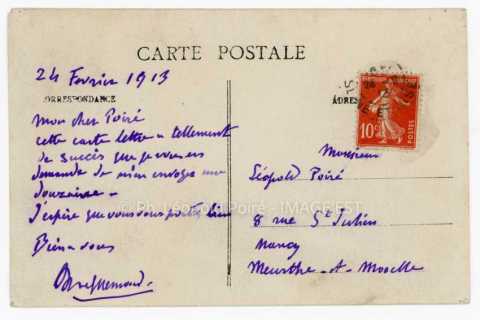 CARTE POSTALE
24 Fevrier 1913
CORRESPONDANCE
ADRES
mon cher Poiré
cette carte lettre a tellement
de succès que je viens vous
demande de m'en envoyer une
douzaine.
J'espère que vous vous portez bien
Bien à vous
Monsieur
Léopold Poiré
8 rue St Julien
Nancy
Meurthe-et-Moselle
10c
POSTES
© Ph. Léopold Poiré - IMAGE'EST